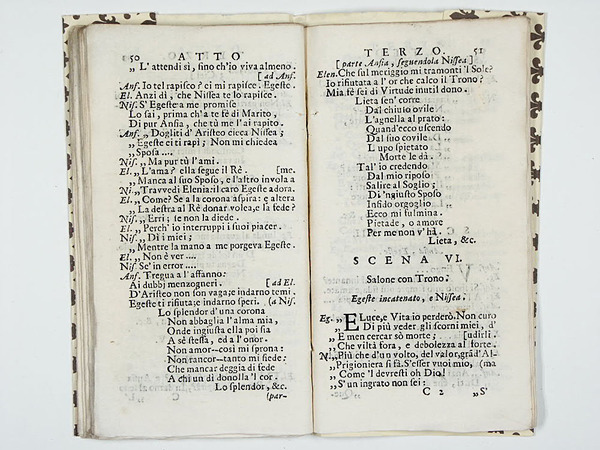 50 ATTO
„ L' attendi sì, sino ch'io viva almeno.
[ ad Anf.
Anf. Io tel rapisco? ei mi rapisce. Egeste.
El. Anzi dì, che Nissea te lo rapisce.
Nis. S' Egeste a me promise
Lo sai, prima ch'a te fè di Marito,
Di pur Ansia, che tù me l'ai rapito.
Anf. „ Dogliti d' Aristeo cieca Nissea;
„ Egeste ei ti rapì; Non mi chiedea
„ Sposa....
Nis. „ Ma pur tù l'ami.
El. „ L'ama? ella segue il Rè. [me.
„ Manca al suo Sposo, e l'altro invola a
Ni. „ Travvedi Elenia: il caro Egeste adora.
El. „ Come? Se a la corona aspira: e altera
„ La destra al Rè donar volea, e la fede?
Nis. „ Erri; se non la diede.
El. „ Perch' io interruppi i suoi piacer.
Nis. „ Di i miei;
„ Mentre la mano a me porgeva Egeste.
El. „ Non è ver....
Nis Se' in error....
Anf. Tregua a l'affanno:
Ai dubbj menzogneri. [ ad El.
D'Aristeo non son vaga; e indarno temi.
Egeste ti rifiuta; e indarno speri. (a Nis.
Lo splendor d'una corona
Non abbaglia l'alma mia,
Onde ingiusta ella poi sia
A sè stessa, ed a l'onor.
Non amor--così mi sprona:
Non rancor--tanto mi siede:
Che mancar deggia di fede
A chi un dì donolla 'l cor.
Lo splendor, &c.
(par-
TERZO. 51
[ parte Ansia, seguendola Nissea ]
Elen. Che sul meriggio mi tramonti 'l Sole?
Io rifiutata a l' or che calco il Trono?
Mia fè sei di Virtude inutil dono.
Lieta sen' corre
Dal chiuso ovile
L'agnella al prato:
Quand'ecco uscendo
Dal suo covile
L'upo spietato
Morte le dà.
Tal' io credendo
Dal mio riposo
Salire al Soglio;
Di 'ngiusto Sposo
Infido orgoglio
Ecco mi fulmina.
Pietade, o amore
Per me non v'hà.
Lieta, &c.
SCENA VI.
Salone con Trono.
Egeste incatenato, e Nissea.
Eg. „ E Luce, e Vita io perderò. Non curo
„ Di più veder gli scorni miei, d'
„ E men cercar sò morte; [udirli.
„ Che viltà fora, e debolezza al forte.
N. „ Più che d'un volto, del valor, grād' Al-
„ Prigioniera si fà. S'esser vuoi mio, (ma
„ Come 'l devresti oh Dio!
„ S' un ingrato non sei:
C 2 „ S'